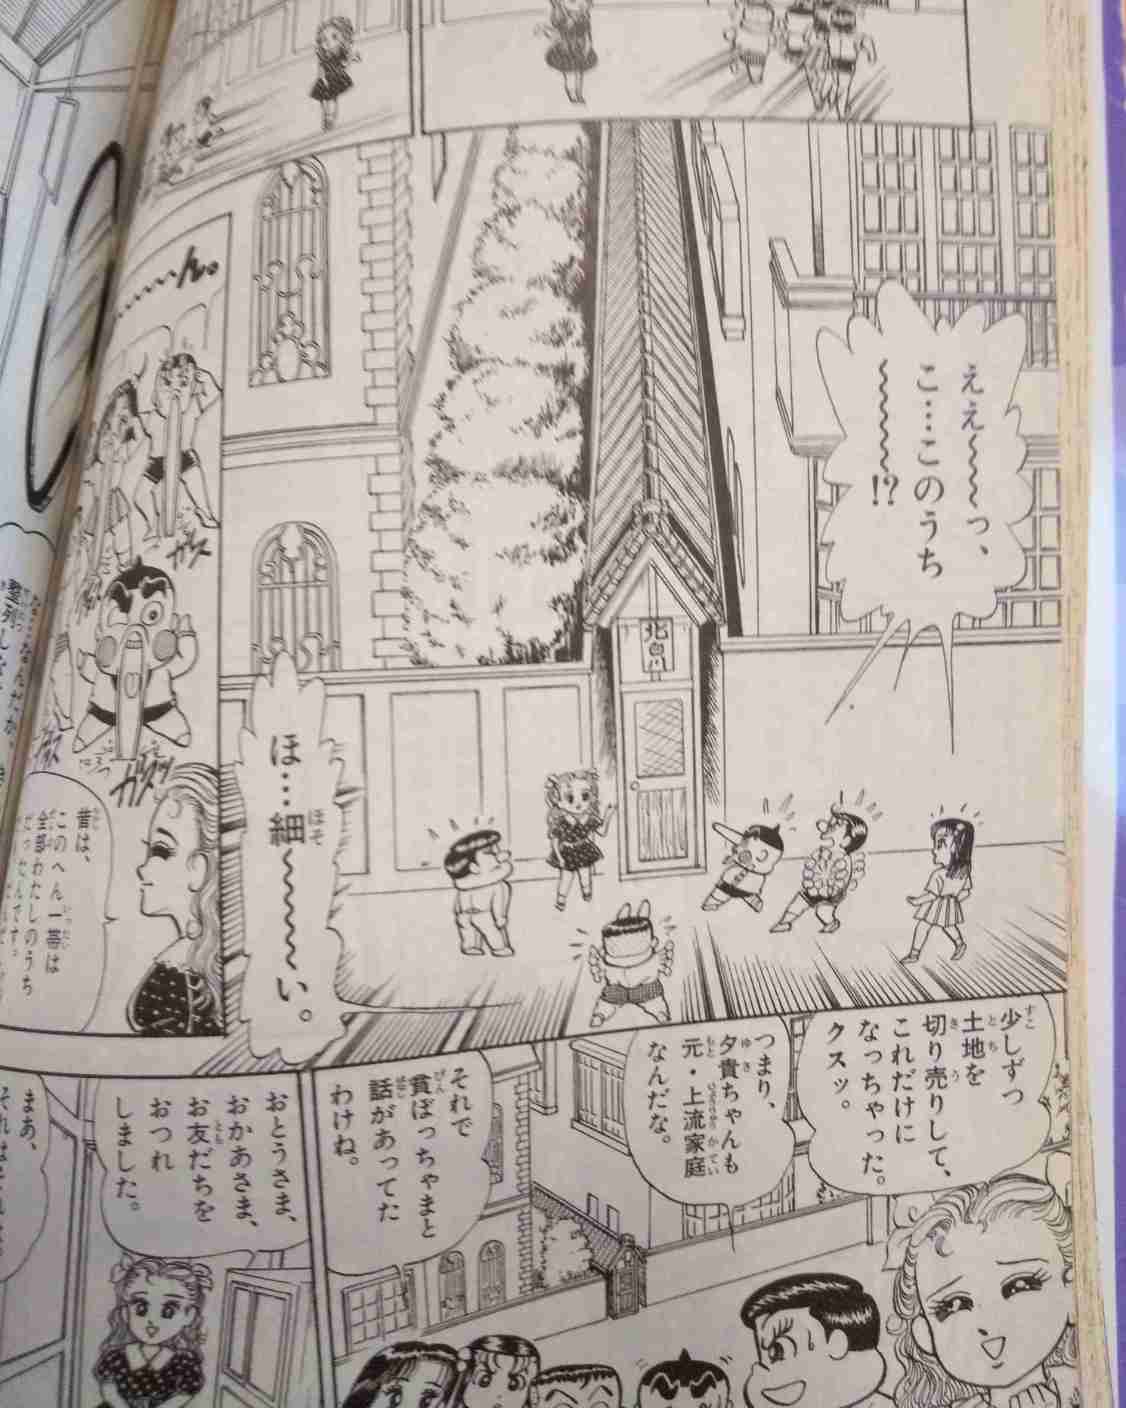 ええ〜〜〜っ、
こ…このうち
〜〜〜〜〜!?
北白川
ほ…細〜〜〜〜い。
……ん。
昔は、
このへん一帯は
全部わたしのうち
だったんです。
少しずつ
土地を
切り売りして、
これだけに
なっちゃった。
クスッ。
つまり、
夕貴ちゃんも
元・上流家庭
なんだな。
それで
貧ぼっちゃまと
話があってた
わけね。
おとうさま、
おかあさま、
お友だちを
おつれ
しました。
まあ、